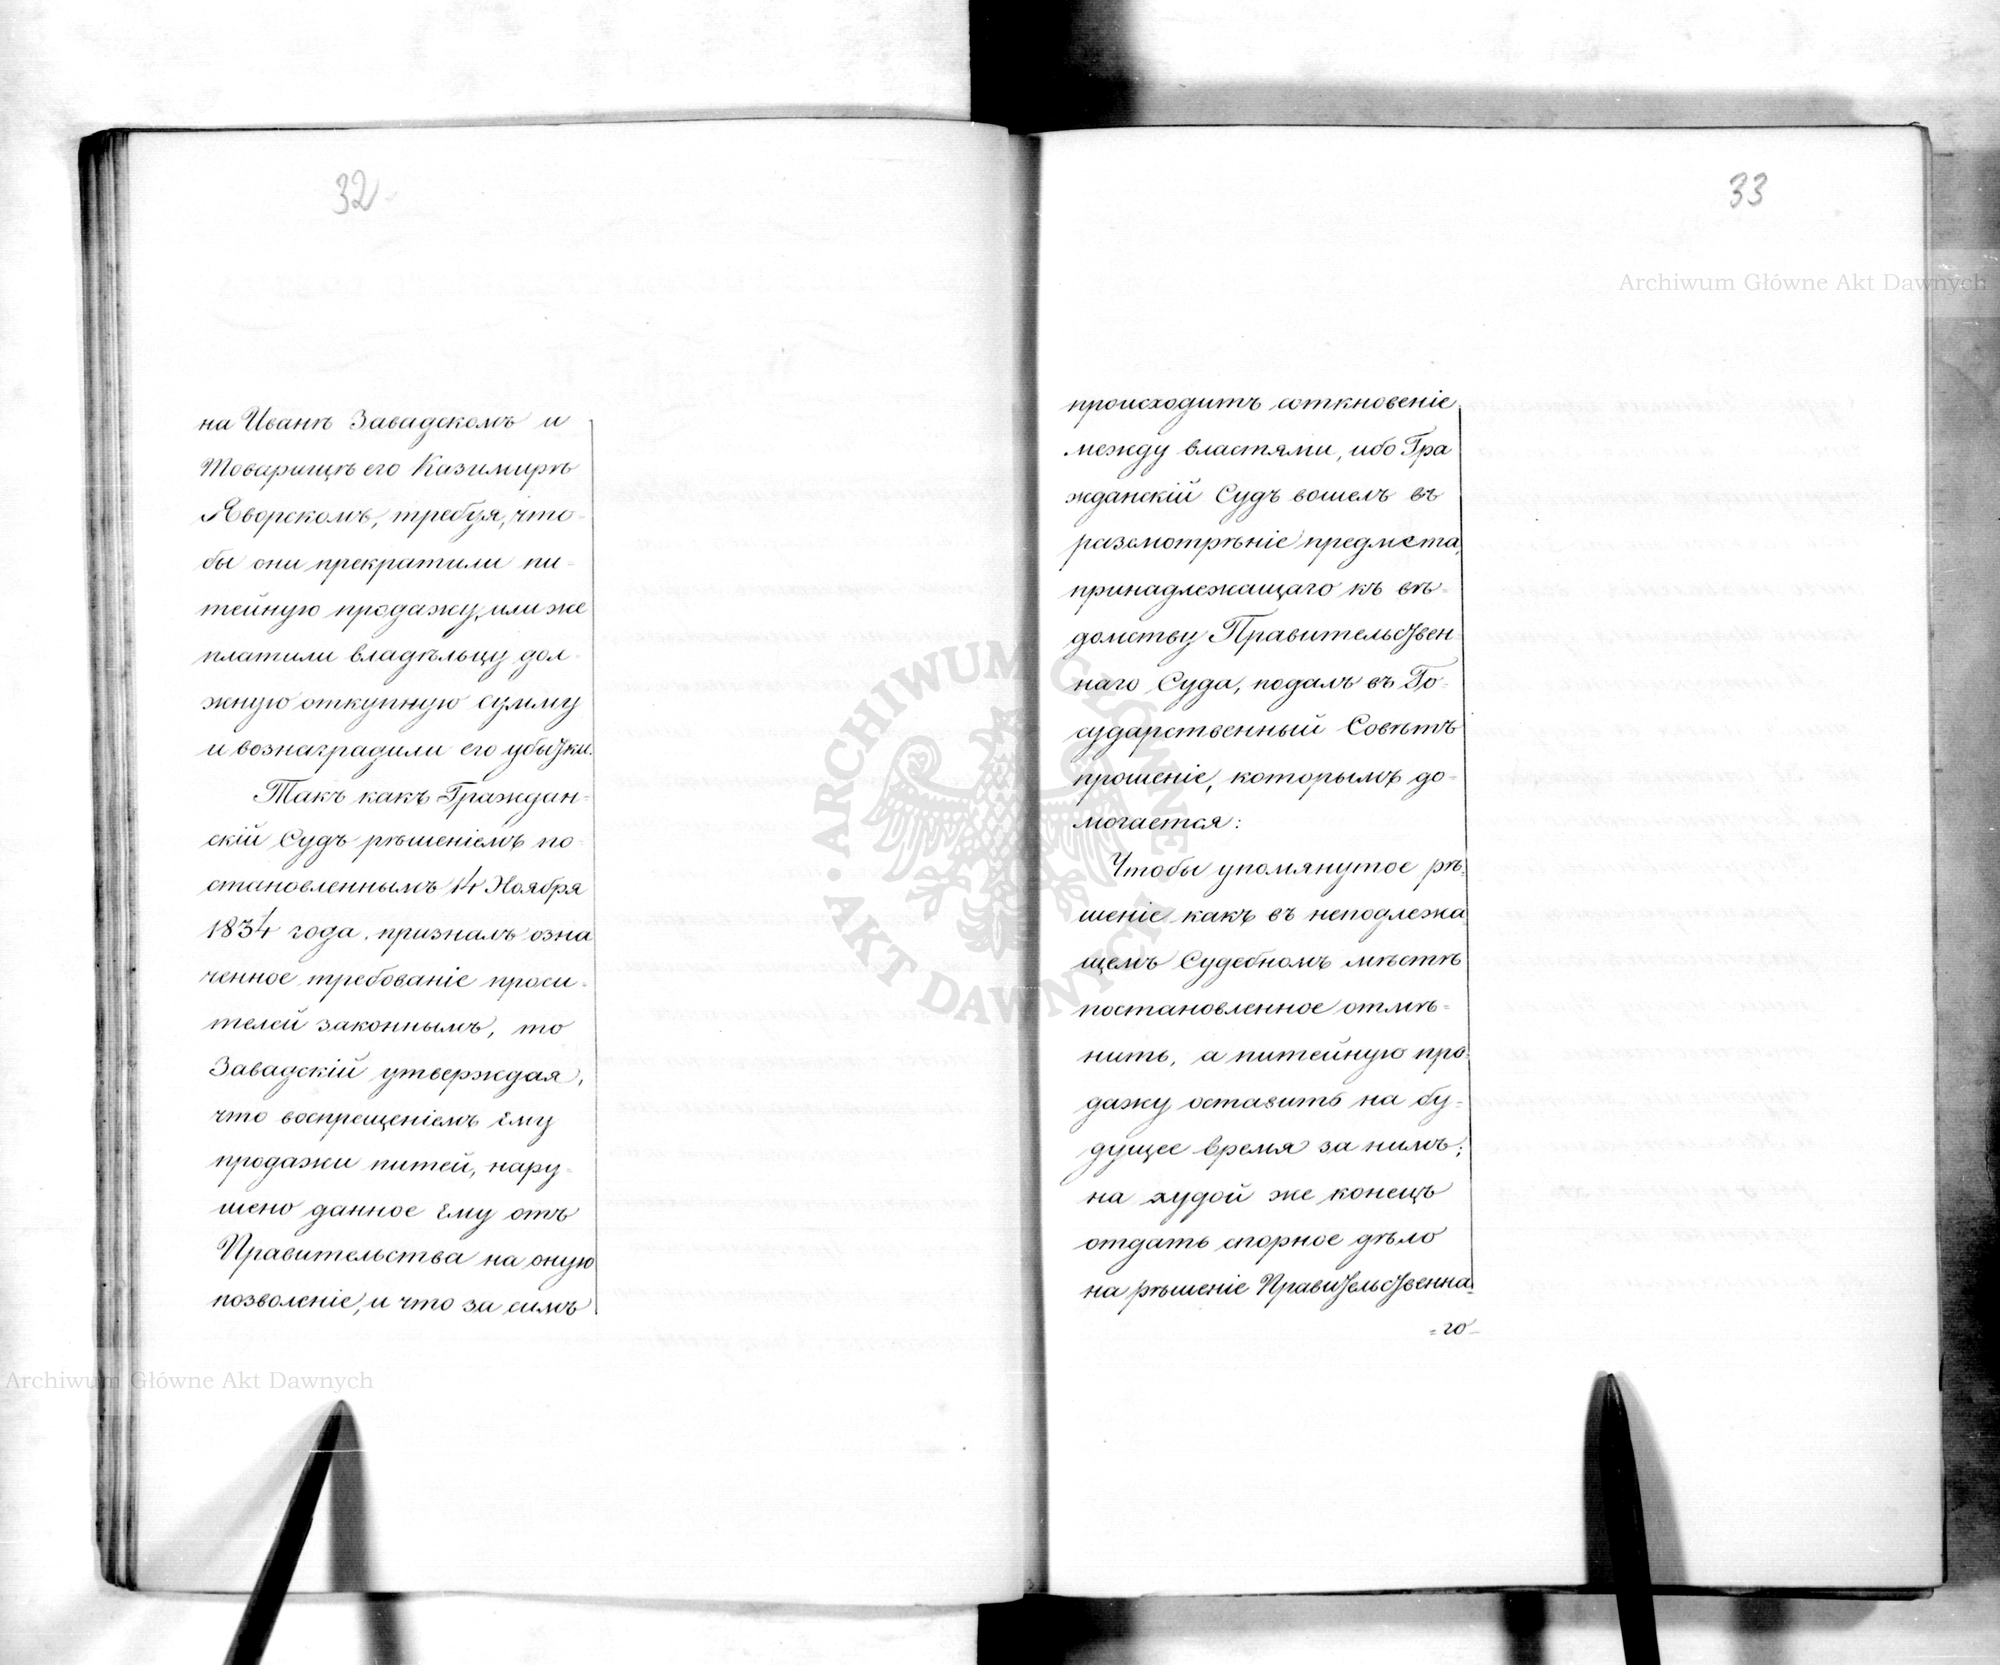 32
на Иванѣ Завадскомъ и
Товарищѣ его Казимирѣ
Яворскомъ, требуя, что-
бы они прекратили пи-
тейную продажу, или же
платили владѣльцу дол-
жную откупную сумму
и вознаградили его убытки.
Такъ какъ Граждан-
скій Судъ рѣшеніемъ по-
становленнымъ 14 Ноября
1834 года, призналъ озна
ченное требованіе проси-
телей законнымъ, то
Завадскій утверждая,
что воспрещеніемъ ему
продажи питей, нару-
шено данное ему отъ
Правительства на оную
позволеніе, и что за симъ
33
происходитъ соткновеніе
между властями, ибо Гра
жданскій Судъ вошелъ въ
разсмотрѣніе предмета,
принадлежащаго къ вѣ-
домству Правительствен-
наго Суда, подалъ въ Го-
сударственный Совѣтъ
прошеніе, которымъ до-
могается:
Чтобы упомянутое рѣ-
шеніе какъ въ неподлежа
щемъ Судебномъ мѣстѣ
постановленное отмѣ-
нить, а питейную про-
дажу оставить на бу-
дущее время за нимъ;
на худой же конецъ
отдать спорное дѣло
на рѣшеніе Правительственна-
-го-
Archiwum Główne Akt Dawnych
Archiwum Główne Akt Dawnych
ARCHIWUM GŁÓWNE
AKT DAWNYCH